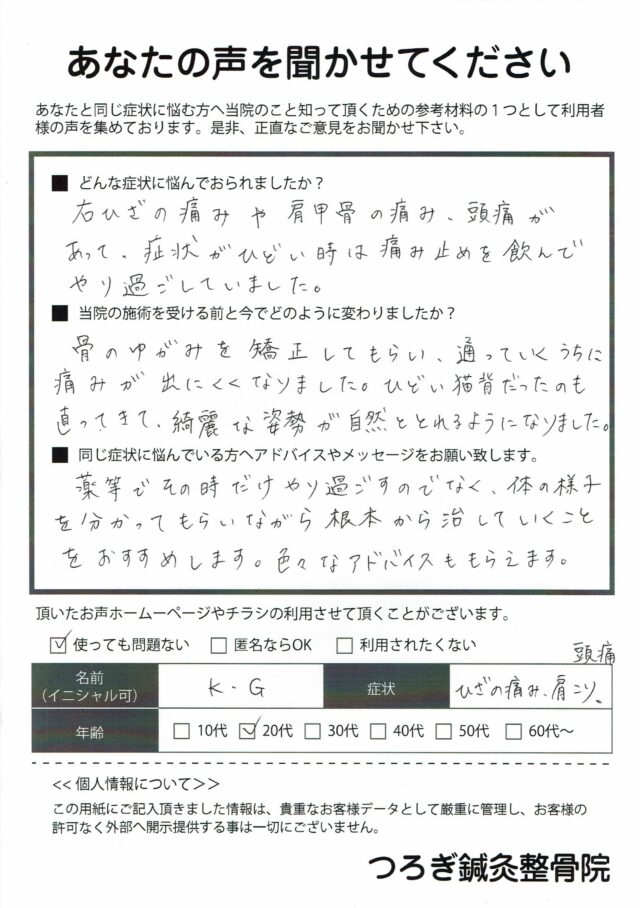 あなたの声を聞かせてください
あなたと同じ症状に悩む方へ当院のこと知って頂くための参考材料の１つとして利用者
様の声を集めております。是非、正直なご意見をお聞かせ下さい。
■ どんな症状に悩んでおられましたか？
右ひざの痛みや肩甲骨の痛み、頭痛が
あって、症状がひどい時は痛み止めを飲んで
やり過ごしていました。
■ 当院の施術を受ける前と今でどのように変わりましたか？
骨のゆがみを矯正してもらい、通っていくうちに
痛みが出にくくなりました。ひどい猫背だったのも
直ってきて、綺麗な姿勢が自然ととれるようになりました。
■ 同じ症状に悩んでいる方へアドバイスやメッセージをお願い致します。
薬等でその時だけやり過ごすのでなく、体の様子
を分かってもらいながら根本から治していくこと
をおすすめします。色々なアドバイスももらえます。
頂いたお声ホームーページやチラシの利用させて頂くことがございます。
☑ 使っても問題ない □ 匿名ならOK □ 利用されたくない
名前
（イニシャル可） K・G 症状 ひざの痛み、肩こり、頭痛
年齢 □ 10代 ☑ 20代 □ 30代 □ 40代 □ 50代 □ 60代〜
<<個人情報について>>
この用紙にご記入頂きました情報は、貴重なお客様データとして厳重に管理し、お客様の
許可なく外部へ開示提供する事は一切にございません。
つろぎ鍼灸整骨院